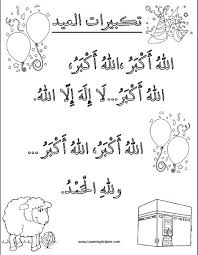 تكبيرات العيد
اللهُ أَكْبَرُ ،اللهُ أَكْبَرُ،
اللهُ أَكْبَرُ...لَا إِلَهَ إِلَّا اللهُ.
اللهُ أَكْبَرُ، اللهُ أَكْبَرُ ...
وَللهِ الْحَمْدُ.
www.LearningArabee.com